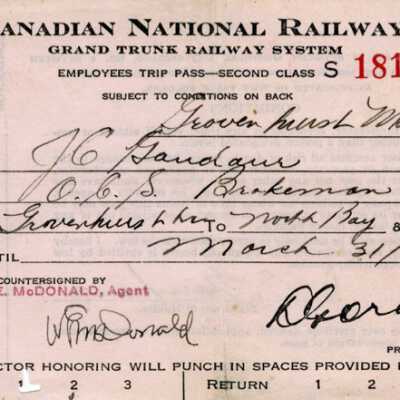 ANADIAN NATIONAL RAILWAY
GRAND TRUNK RAILWAY SYSTEM
EMPLOYEES TRIP PASS—SECOND CLASS S 181
SUBJECT TO CONDITIONS ON BACK
Gravenhurst
J C Gaudaur
O.C.S. Brakeman
Gravenhurst TO North Bay &
TIL March 31/
COUNTERSIGNED BY
E. McDONALD, Agent
McDonald
PR
CTOR HONORING WILL PUNCH IN SPACES PROVIDED
1 2 3 RETURN 1 2